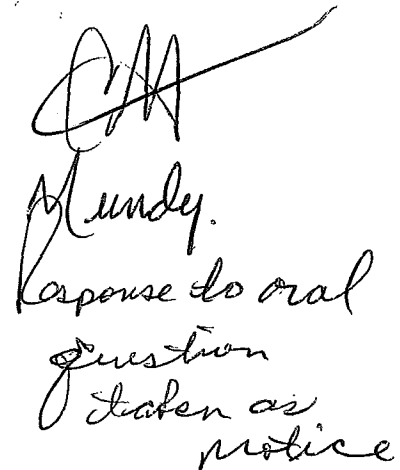 CM
Mundy.
Response to oral
question
taken as
notice